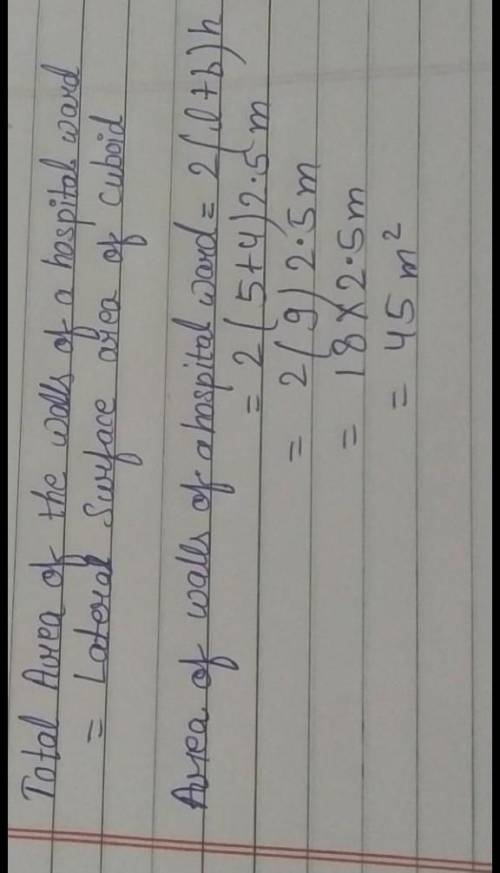 Total Area of the walls of a hospital ward
= Lateral Surface area of cuboid
Area of walls of a hospital ward = 2(l+b)h
= 2(5+4)2.5m
= 2(9)2.5m
= 18×2.5m
= 45 m²